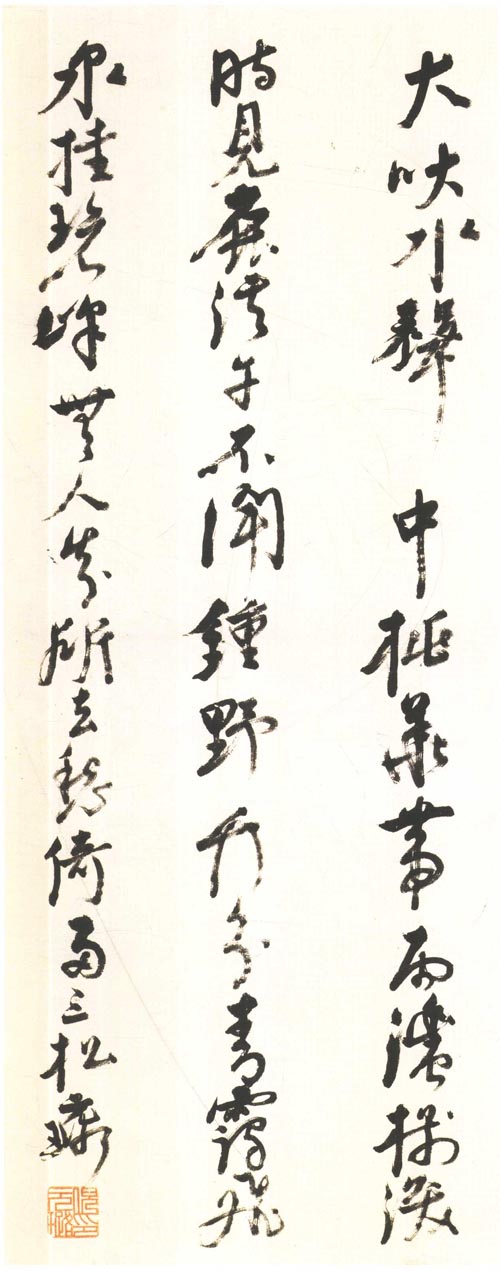 大吠水聲中桃華帶雨濃樹深
時見鹿溪午不聞鍾野竹分青靄飛
泉挂碧峰無人知所去愁倚兩三松璐